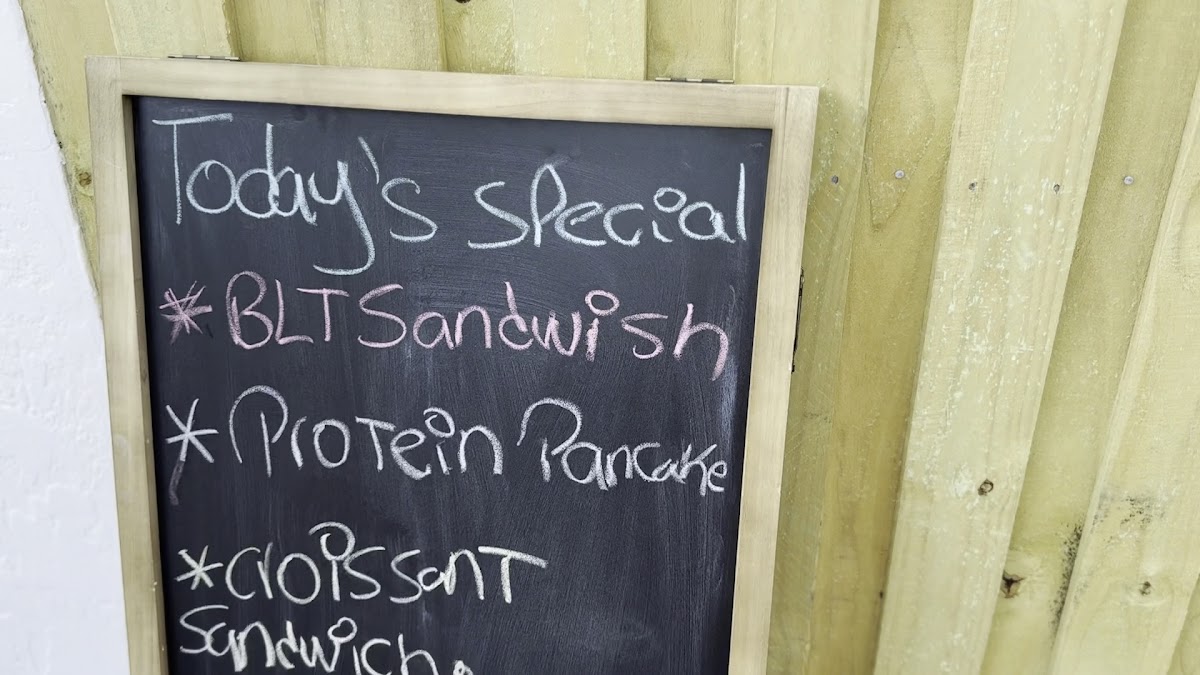 Today's special
*BLT Sandwish
*Protein Pancake
*Croissant
Sandwich.